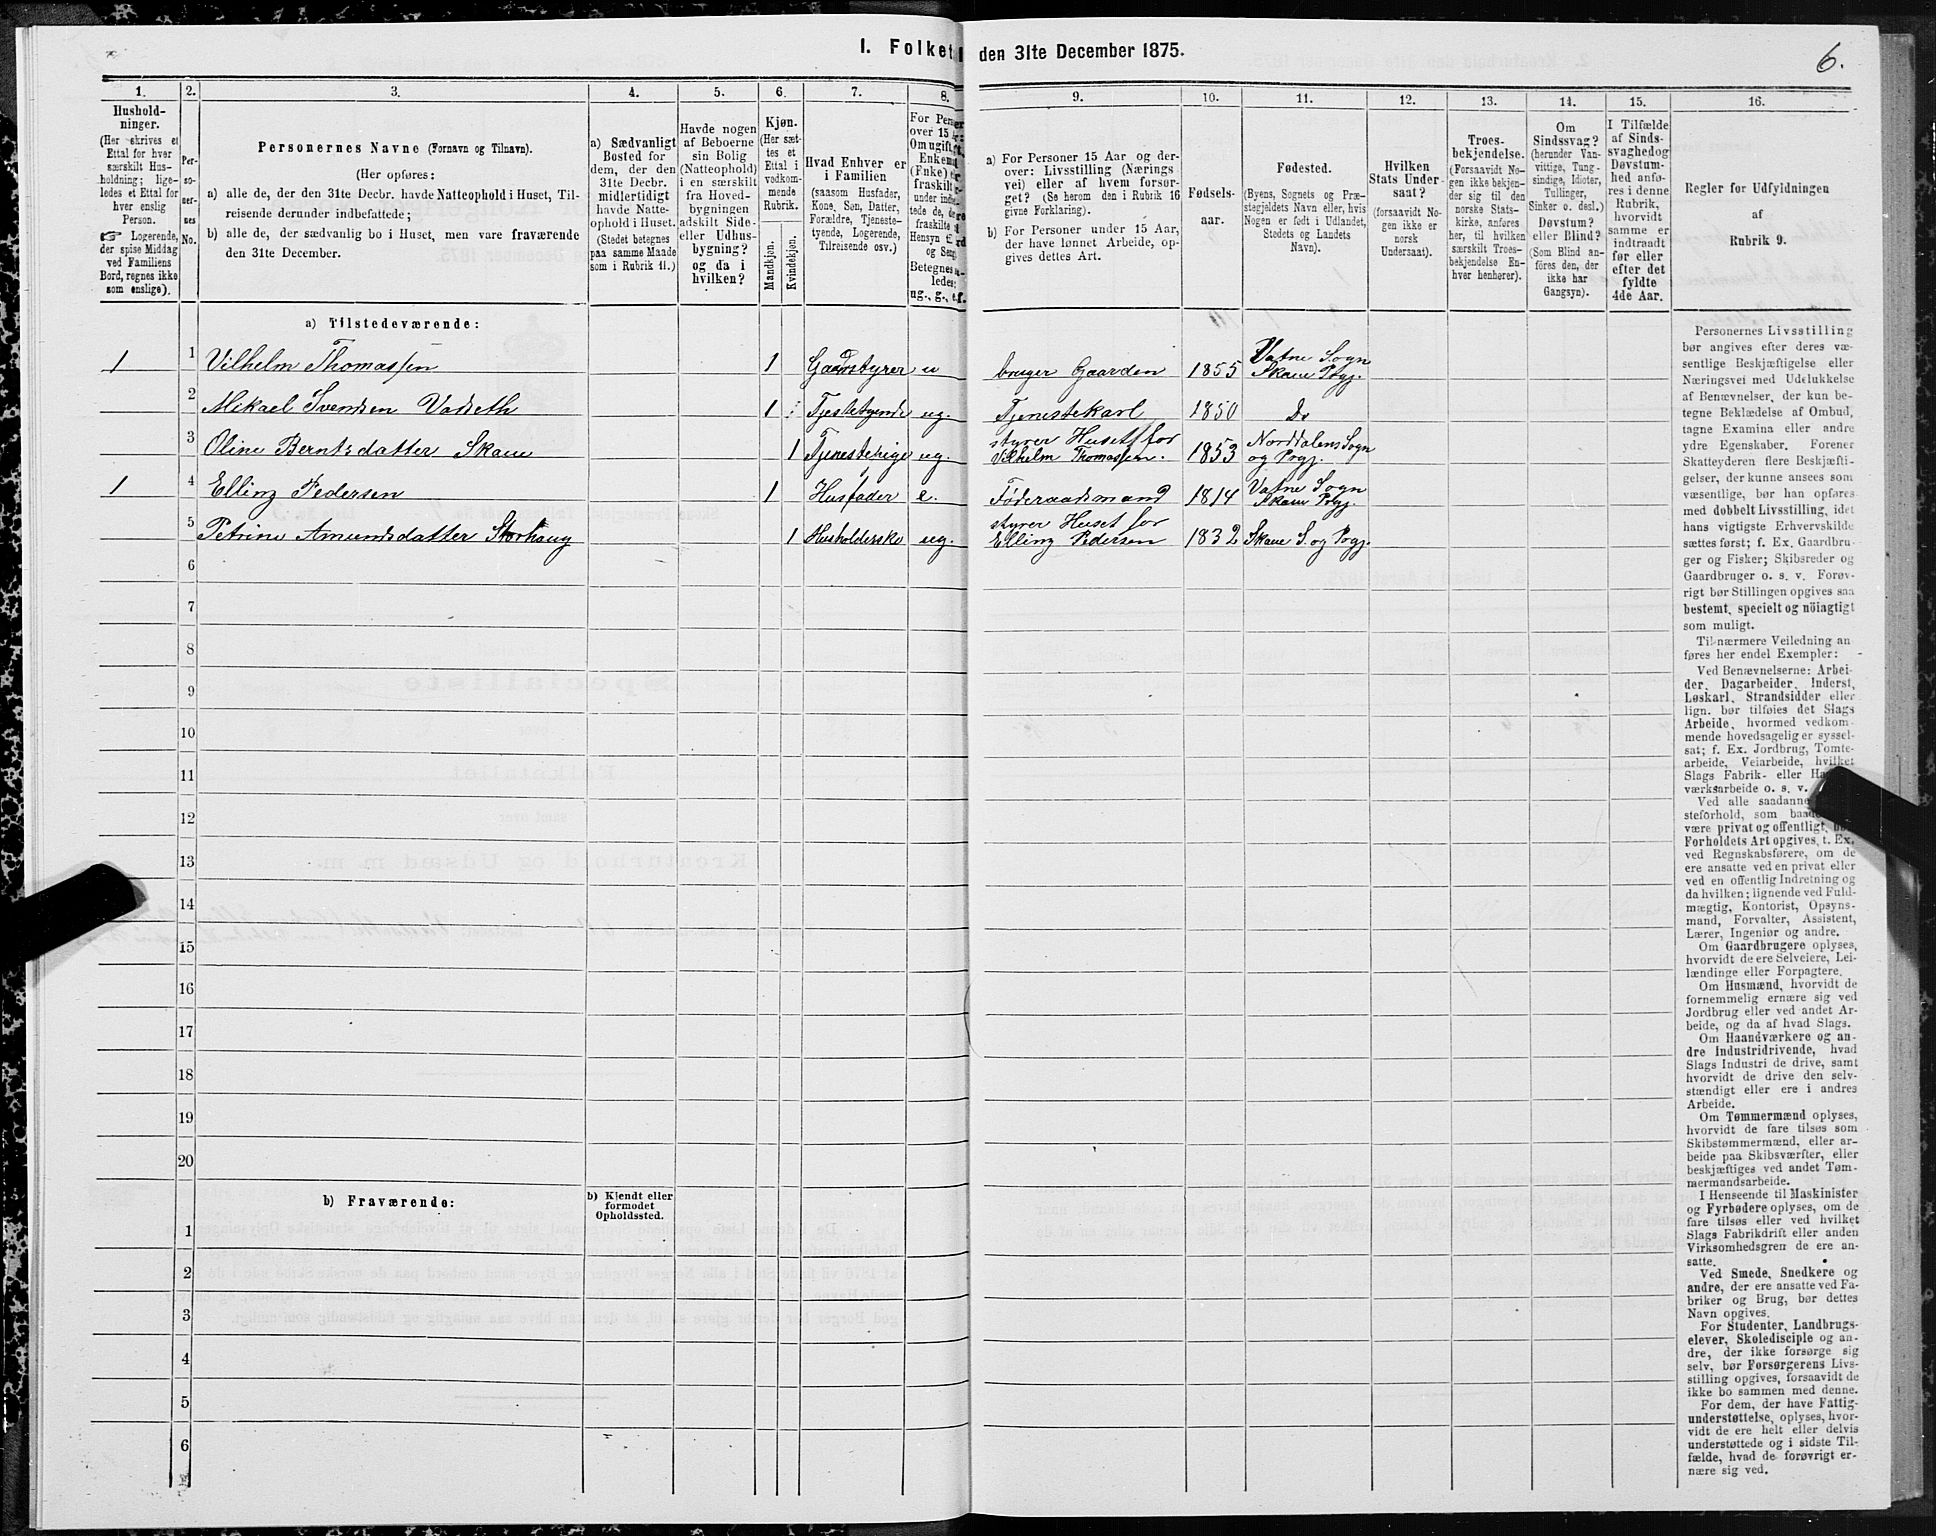 I. Folket
den 31te December 1875.
6.
1.
2.
3.
4.
5.
6.
7.
8.
9.
10.
11.
12.
13.
14.
15.
16.
Hushold-
ninger.
(Her skrives et
Ettal for hver
særskilt Hus-
holdning; lige-
ledes et Ettal for
hver enslig
Person.
☞ Logerende,
der spise Middag
ved Familiens
Bord, regnes ikke
som enslige).
Per-
so-
ner-
nes
No.
Personernes Navne (Fornavn og Tilnavn).
(Her opføres:
a) alle de, der den 31te Decbr. havde Natteophold i Huset, Til-
reisende derunder indbefattede;
b) alle de, der sædvanlig bo i Huset, men vare fraværende
den 31te December.
a) Sædvanligt
Bosted for
dem, der den
31te Decbr.
midlertidigt
havde Natte-
ophold i Huset.
(Stedet betegnes
paa samme Maade
som i Rubrik 11.)
Havde nogen
af Beboerne
sin Bolig
(Natteophold)
i en særskilt
fra Hoved-
bygningen
adskilt Side-
eller Udhus-
bygning?
og da i
hvilken?
Kjøn.
(Her sæt-
tes et
Ettal i
vedkom-
mende
Rubrik.
Mandkjøn.
Kvindekjøn.
Hvad Enhver er
i Familien
(saasom Husfader,
Kone, Søn, Datter,
Forældre, Tjeneste-
tyende, Logerende,
Tilreisende osv.)
a) For Personer 15 Aar og der-
over: Livsstilling (Nærings
vei) eller af hvem forsør-
get? (Se herom den i Rubrik 16
givne Forklaring).
b) For Personer under 15 Aar,
der have lønnet Arbeide, op-
gives dettes Art.
Fødsels-
aar.
Fødested.
(Byens, Sognets og Præ-
stegjeldets Navn eller, hvis
Nogen er født i Udlandet,
Stedets og Landets
Navn).
Hvilken
Stats Under-
saat?
(forsaavidt No-
gen ikke er
norsk
Undersaat).
Troes-
bekjendelse.
(Forsaavidt No-
gen ikke bekjen-
der sig til den
norske Stats-
kirke, anføres
her, til hvilken
særskilt Troes-
bekjendelse En-
hver henhører).
Om
Sindssvag?
(herunder Van-
vittige, Tung-
sindige, Idioter,
Tullinger,
Sinker o. desl.)
Døvstum?
eller Blind?
(Som Blind an-
føres den, der
ikke har
Gangsyn).
I Tilfælde
af Sinds-
svaghed og
Døvstum-
hed anfø-
res i denne
Rubrik,
hvorvidt
samme er
indtraadt
før eller
efter det
fyldte
4de Aar.
Regler for Udfyldningen
af
Rubrik 9.
a) Tilstedeværende:
1 1 Vilhelm Thomassen 1 Gaardstyrer u bruger Gaarden 1855 Vatne Sogn
Skaue Pgj.
2 Mikael Svendsen Vadseth 1 Tjestetyende ug. Tjenestekarl 1850 Do
3 Oline Berntsdatter Skaue 1 Tjenestepige ug. styrer Huset for
Vilhelm Thomassen. 1853 Norddalens Sogn
og Pgj.
1 4 Elling Pedersen 1 Husfader e. Føderaadsmand 1814 Vatne Sogn
Skaue Pgj.
5 Petrine Amundsdatter Storhaug 1 Husholderske ug. styrer Huset for
Elling Pedersen 1832 Skaue S. og Pgj.
6
7
8
9
10
11
12
13
14
15
16
17
18
19
20
b) Fraværende:
b) Kjendt eller
formodet
Opholdssted.
1
2
3
4
5
6
Personernes Livsstilling
bør angives efter deres væ-
sentlige Beskjæftigelse eller
Næringsvei med Udelukkelse
af Benævnelser, der kun be-
tegne Beklædelse af Ombud,
tagne Examina eller andre
ydre Egenskaber. Forener
Skatteyderen flere Beskjæfti-
gelser, der kunne ansees som
væsentlige, bør han opføres
med dobbelt Livsstilling, idet
hans vigtigste Erhvervskilde
sættes først; f. Ex. Gaardbru-
ger og Fisker; Skibsreder og
Gaardbruger o. s. v. Forøv-
rigt bør Stillingen opgives saa
bestemt, specielt og nöiagtigt
som muligt.
Til nærmere Veiledning an
føres her endel Exempler:
Ved Benævnelserne: Arbei-
der, Dagarbeider, Inderst,
Løskarl, Strandsidder eller
lign. bør tilføies det Slags
Arbeide, hvormed vedkom-
mende hovedsagelig er syssel-
sat; f. Ex. Jordbrug, Tomte-
arbeide, Veiarbeide, hvilket
Slags Fabrik- eller
værksarbeide o. s. v.
Ved alle saadanne
steforhold, som
være privat og offentligt,
Forholdets Art opgives, t. Ex.
ved Regnskabsførere, om de
ere ansatte ved en privat eller
ved en offentlig Indretning og
da hvilken; lignende ved Fuld-
mægtig, Kontorist, Opsyns-
mand, Forvalter, Assistent,
Lærer, Ingeniør og andre.
Om Gaardbrugere oplyses,
hvorvidt de ere Selveiere, Lei-
lændinge eller Forpagtere.
Om Husmænd, hvorvidt de
fornemmelig ernære sig ved
Jordbrug eller ved andet Ar-
beide, og da af hvad Slags.
Om Haandværkere og an-
dre Industridrivende, hvad
Slags Industri de drive, samt
hvorvidt de drive den selv-
stændigt eller ere i andres
Arbeide.
Om Tømmermænd oplyses,
hvorvidt de fare tilsøs som
Skibstømmermænd, eller ar-
beide paa Skibsværfter, eller
beskjæftiges ved andet Tøm-
mermandsarbeide.
I Henseende til Maskinister
og Fyrbødere oplyses, om de
fare tilsøs eller ved hvilket
Slags Fabrikdrift eller anden
Virksomhedsgren de ere an-
satte.
Ved Smede, Snedkere og
andre, der ere ansatte ved Fa-
briker og Brug, bør dettes
Navn opgives.
For Studenter, Landbrugs-
elever, Skoledisciple og an-
dre, der ikke forsørge sig
selv, bør Forsørgerens Livs-
stilling opgives, forsaavidt de
ikke bo sammen med denne.
For dem, der have Fattig-
understøttelse, oplyses, hvor-
vidt de ere helt eller delvis
understøttede og i sidste Til-
fælde, hvad de forøvrigt er-
nære sig ved.